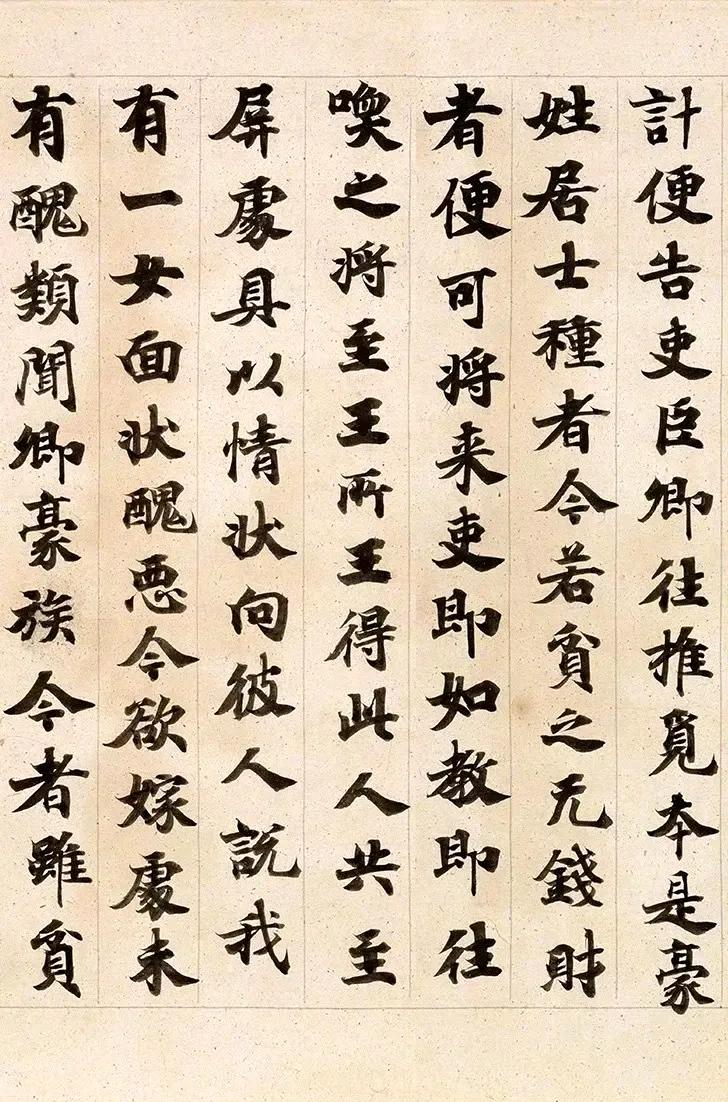 計便告吏臣卿往推覓本是豪
姓居士種者今若貧之无錢財
者便可将来吏即如教即往
喚之将至王所王得此人共至
屏處具以情状向彼人說我
有一女面状醜惡今欲嫁處未
有醜類聞卿豪族今者雖貧